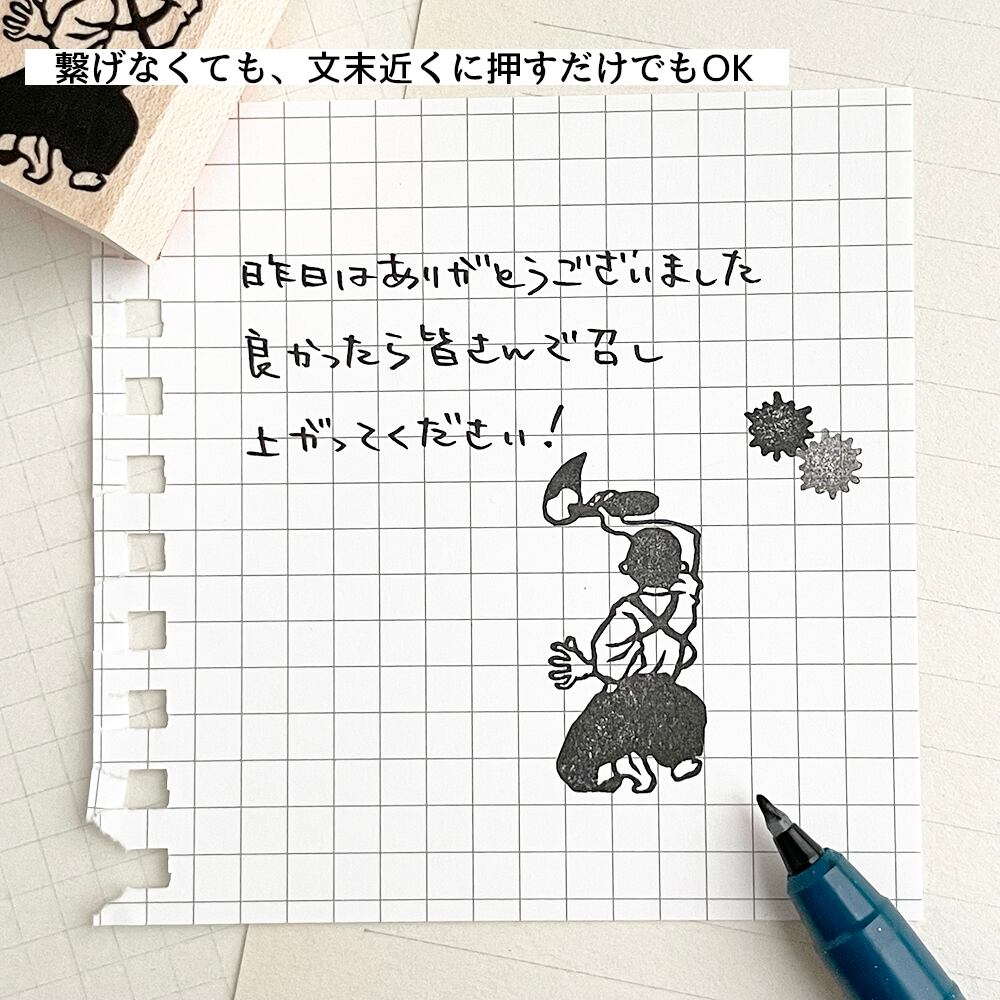 繋げなくても、文末近くに押すだけでもOK
昨日はありがとうございました
良かったら皆さんで召し
上がってください!